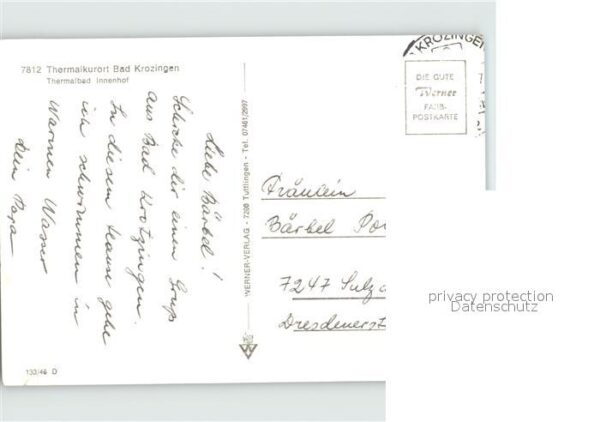 7812 Thermalkurort Bad Krozingen
Thermalbad Innenhof
KROZINGEN
DIE GUTE
Werner
FARB-
POSTKARTE
Liebe Bärbel!
Schicke dir einen Gruß
aus Bad Krotzingen.
In diesem Hause gehe
ich schwimmen in
Warmen Wasser
Dein Papa
WERNER-VERLAG - 7200 Tuttlingen - Tel. 07461/2997
Fräulein
Bärbel Po
7247 Sulz a
Dresdenerst
133/46 D
privacy protection
Datenschutz